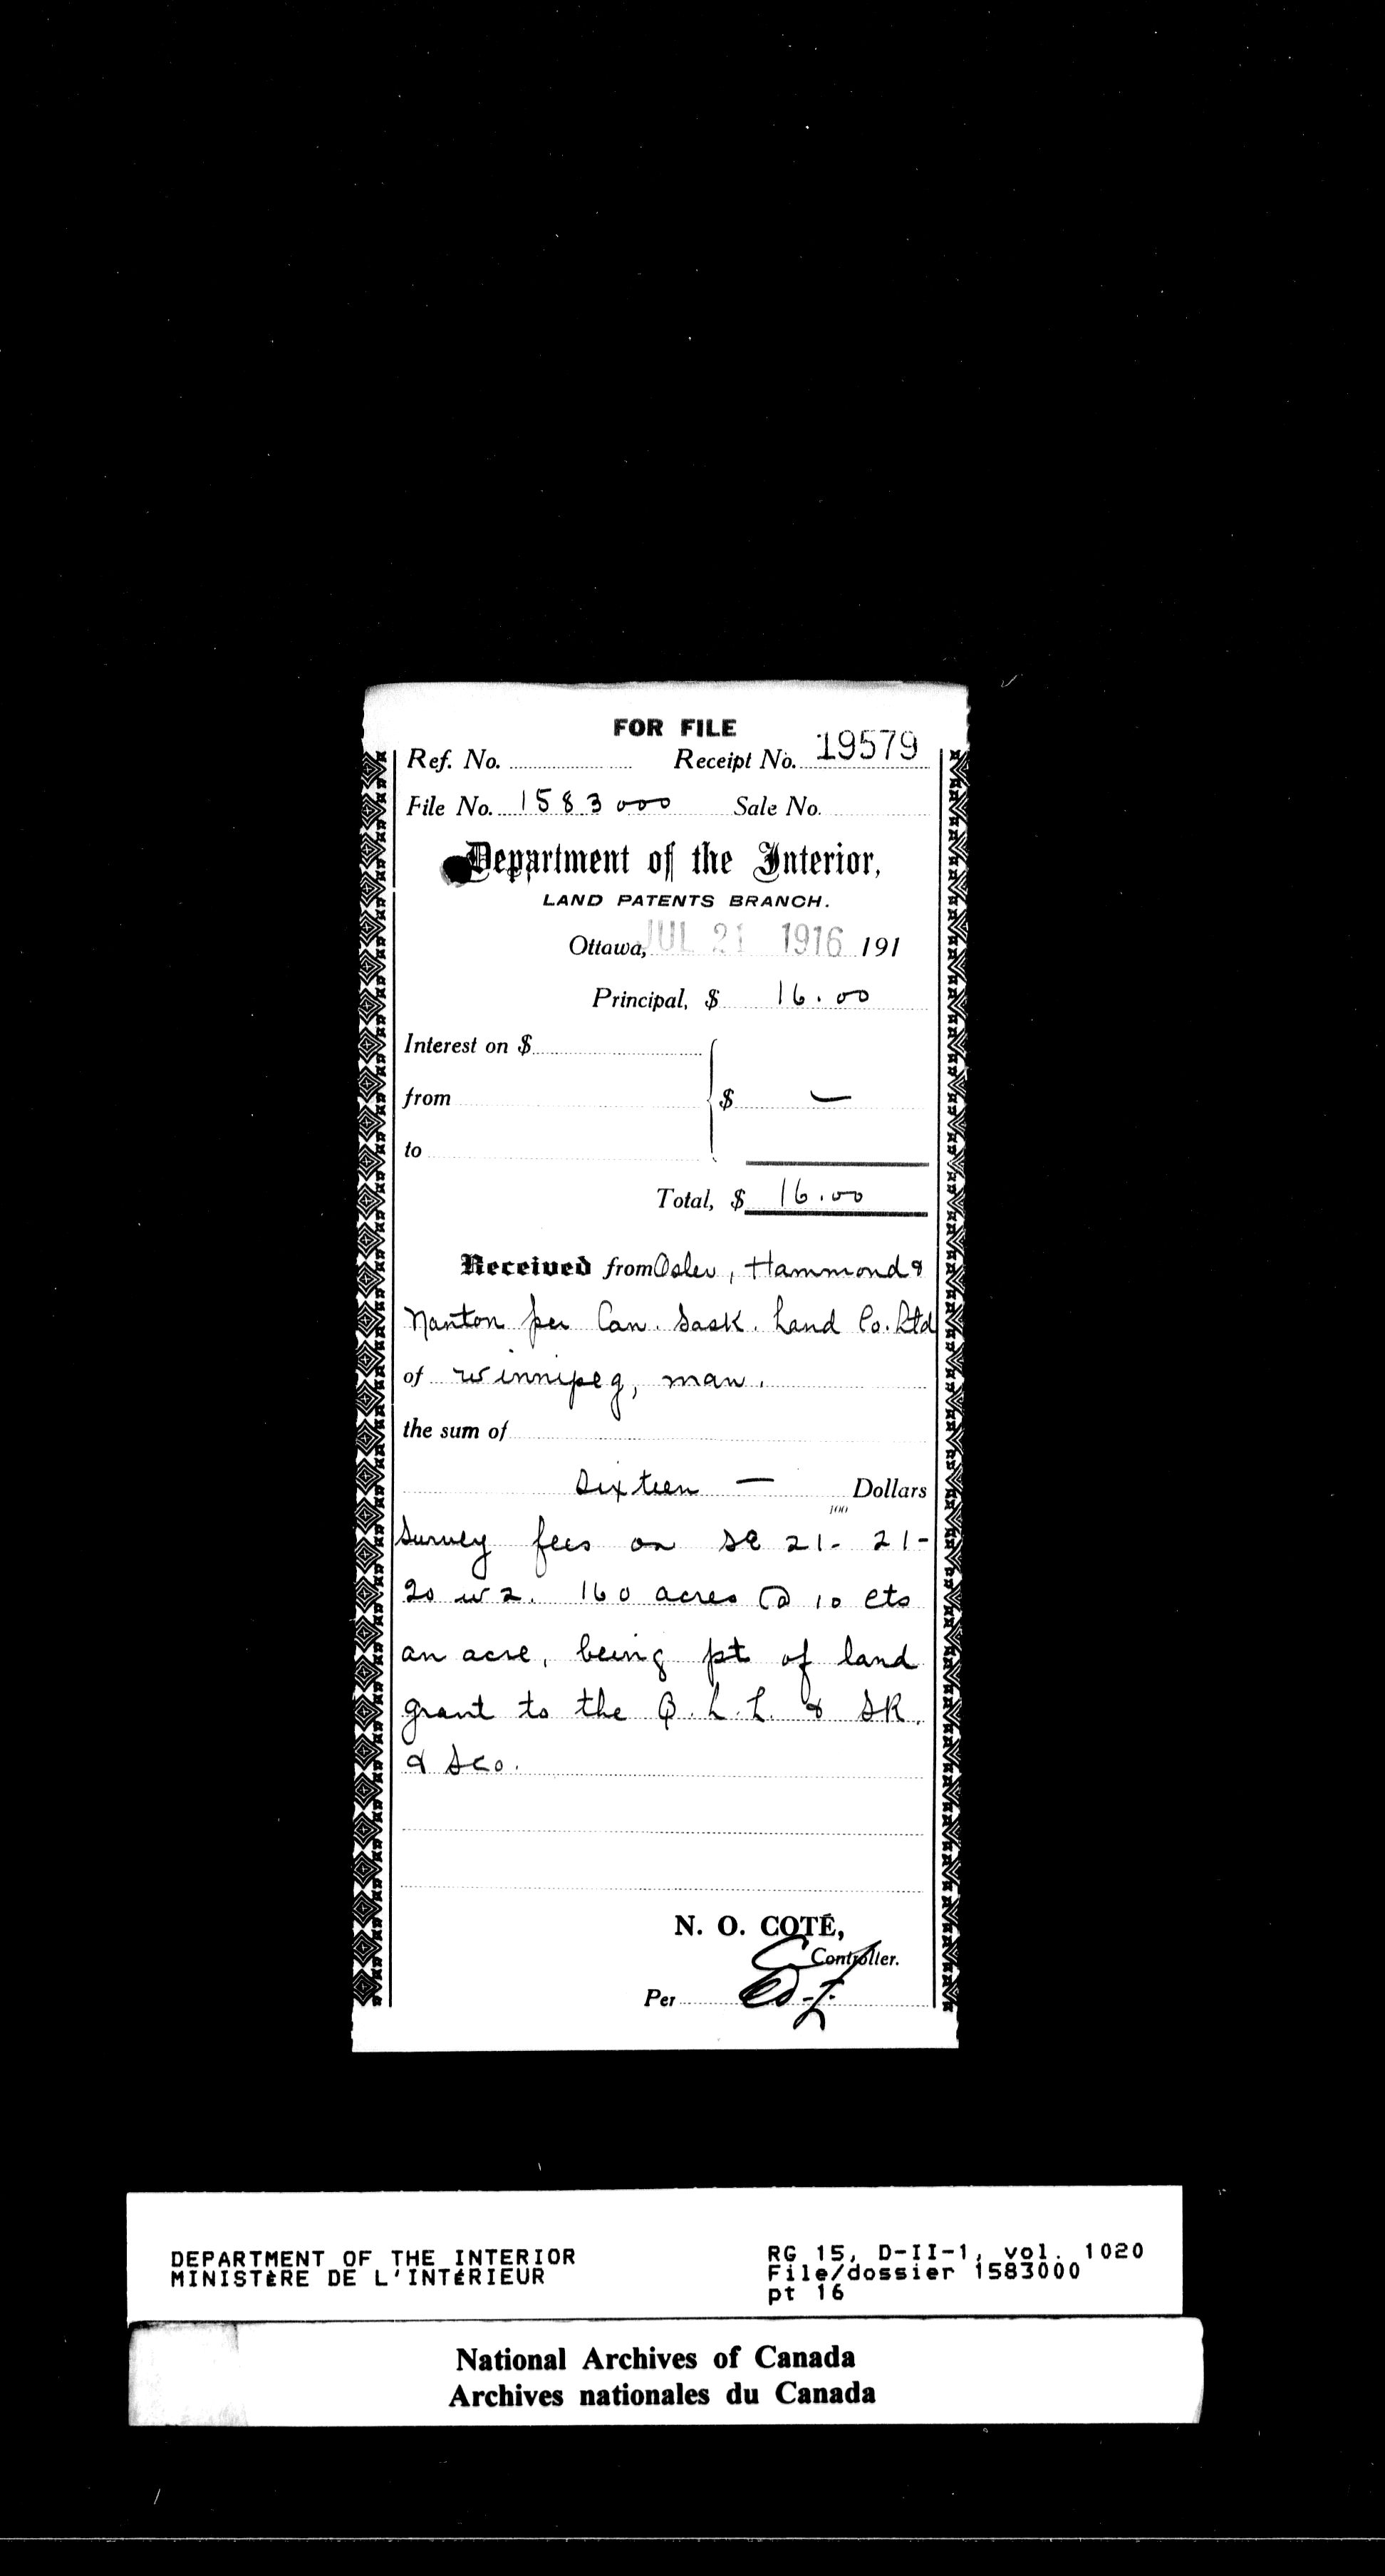 FOR FILE
Ref. No. Receipt No. 19579
File No. 1583000 Sale No.
Department of the Interior,
LAND PATENTS BRANCH.
Ottawa, JUL 21 1916 191
Principal, $ 16.00
Interest on $
from $ —
to
Total, $ 16.00
Received from Osler, Hammond &
Nanton per Can. Sask. Land Co. Ltd
of Winnipeg, Man.
the sum of
Sixteen — Dollars
100
Survey fees on SE 21-21-
20 W 2. 160 acres @ 10 cts
an acre, being pt of land
grant to the Q. L. L. & SR.
& S Co.
N. O. COTÉ,
Controller.
Per
DEPARTMENT OF THE INTERIOR
MINISTÈRE DE L'INTÉRIEUR
RG 15, D-II-1, vol. 1020
File/dossier 1583000
pt 16
National Archives of Canada
Archives nationales du Canada